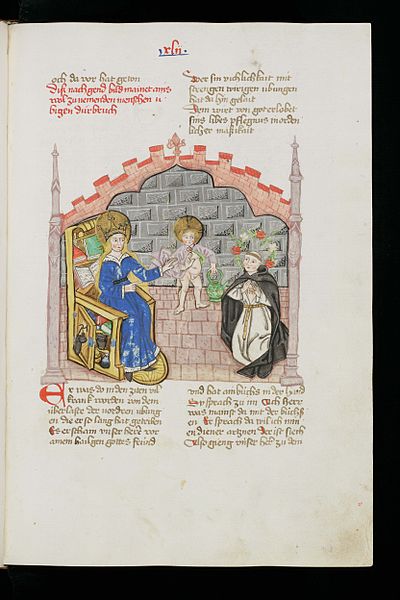 ·xlij·
och da vor hat geton
Diß nachgend bild mainet ains
wol zunemenden menschen u
bigen durbruch
Wer sin vichlichkait mit
strengen wirigen übungen
hat da hin geleit
Dem wirt von got erlobet
sins libes pflegnus in orden
licher mässikait
Er was do in den ziten vil
krank worden von dem
überlast der vordren übung
en die er so lang hat getriben
Es erscham unser herr vor
ainem hailgen gottes frund
und hat ain büchs in der hand
Sy sprach zu im Ach herr
was mainst du mit der büchß
en Er sprach da wil ich min
en diener artznen der ist siech
Also gieng unser herr zu dem